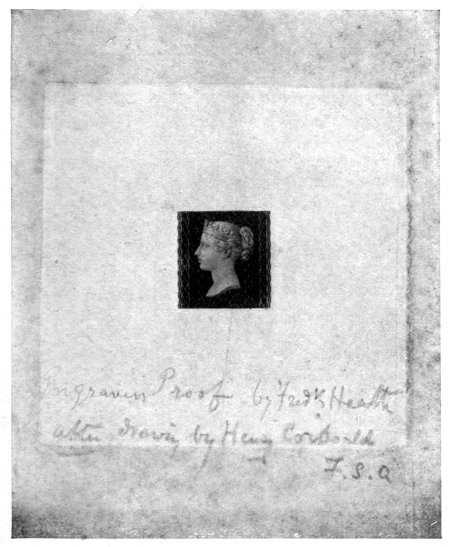 Engraving Proof by Fredk Heath
after drawing by Henry Corbould
F.S.A